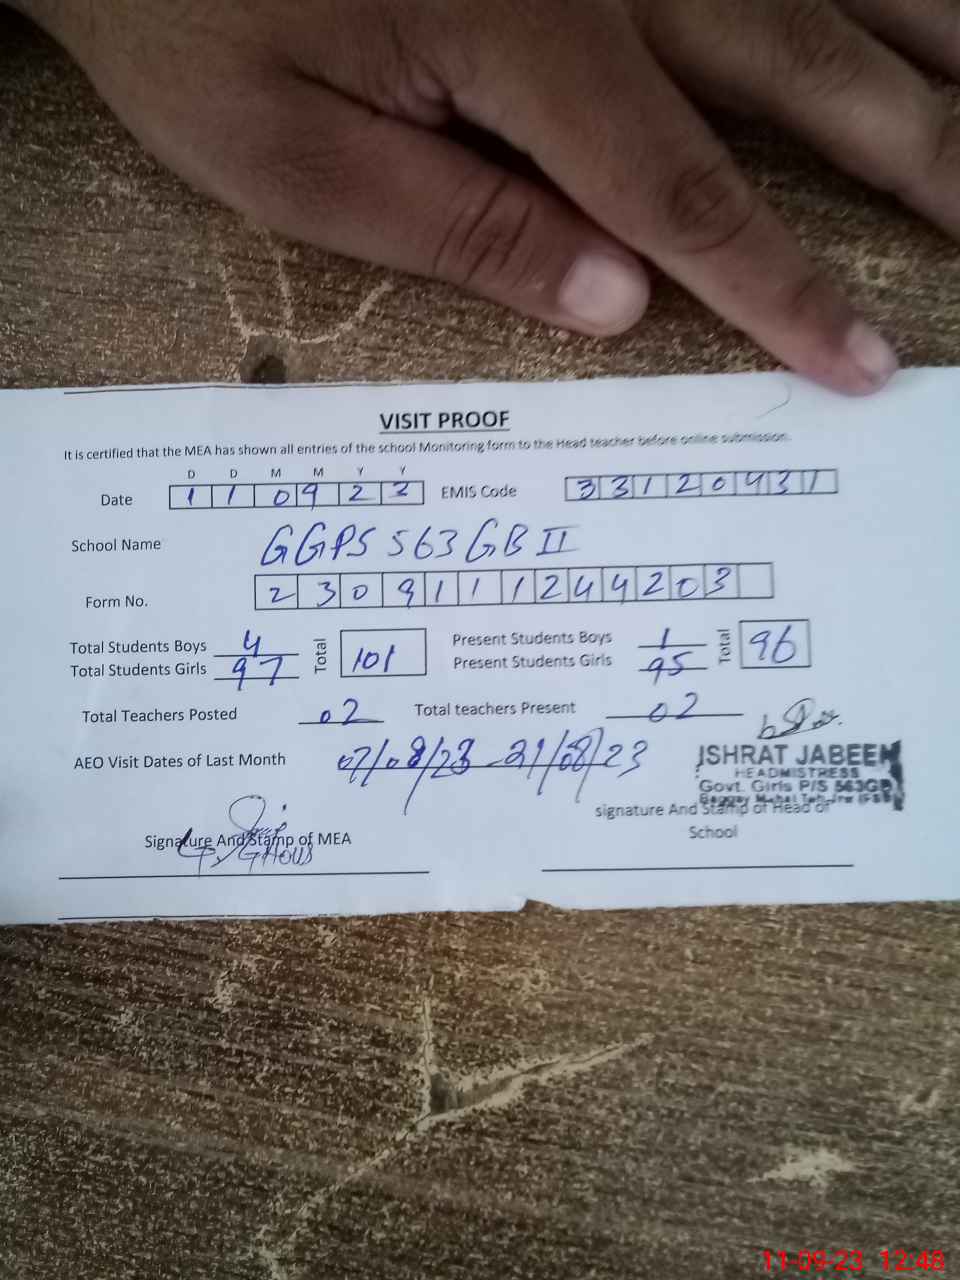 VISIT PROOF
It is certified that the MEA has shown all entries of the school Monitoring form to the Head teacher before online submission.
D D M M Y Y
Date 1 1 0 9 2 3 EMIS Code 3 3 1 2 0 4 3 1
School Name GGPS 563 GB II
Form No. 2 3 0 9 1 1 1 2 4 4 2 0 3
Total Students Boys 4 Total 101 Present Students Boys 1 Total 96
Total Students Girls 97 Present Students Girls 95
Total Teachers Posted 02 Total teachers Present 02
AEO Visit Dates of Last Month 07/08/23 - 21/08/23
ISHRAT JABEEN
HEADMISTRESS
Govt. Girls P/S 563GB
signature And Stamp of Head of
School
Signature And Stamp of MEA
11-09-23 12:48